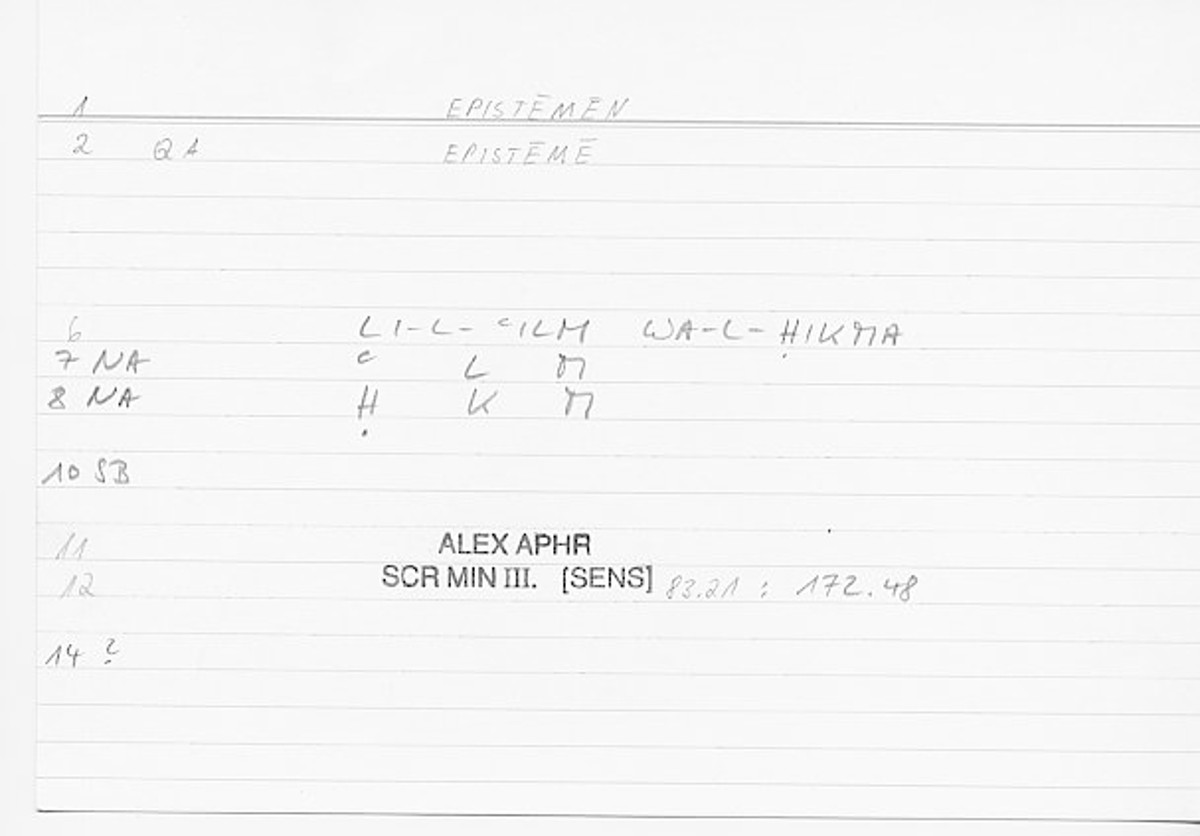 1 EPISTĒMĒN
2 QA EPISTĒMĒ
6 LI-L-ʿILM WA-L-ḤIKMA
7 NA ʿ L M
8 NA Ḥ K M
10 SB
11 ALEX APHR
12 SCR MIN III. [SENS] 83.21 : 172.48
14 ?